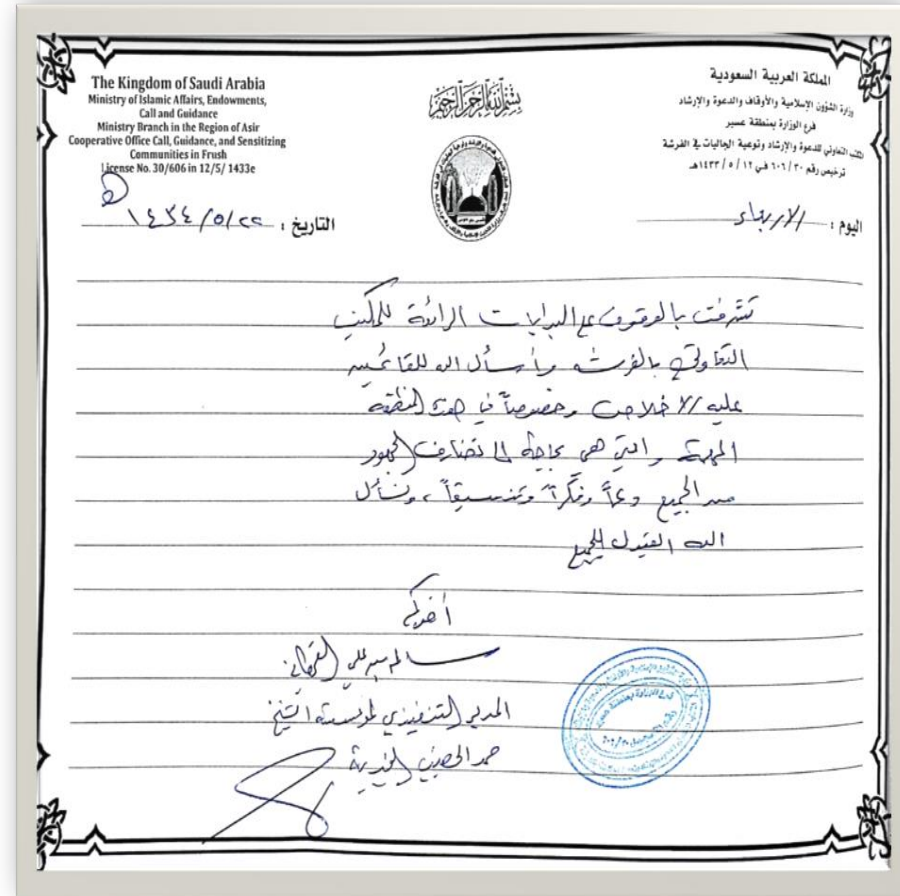 The Kingdom of Saudi Arabia
Ministry of Islamic Affairs, Endowments,
Call and Guidance
Ministry Branch in the Region of Asir
Cooperative Office Call, Guidance, and Sensitizing
Communities in Frush
License No. 30/606 in 12/5/ 1433e
بسم الله الرحمن الرحيم
المملكة العربية السعودية
وزارة الشؤون الإسلامية والأوقاف والدعوة والإرشاد
فرع الوزارة بمنطقة عسير
المكتب التعاوني للدعوة والإرشاد وتوعية الجاليات في الفرشة
ترخيص رقم ٦٠٦/٣٠ في ١٤٣٣/٥/١٢هـ
اليوم : الاربعاء
التاريخ : ١٤٣٤/٥/٢٢ هـ
تشرفت بالوقوف على البدايات الرائعة للمكتب
التعاوني بالفرشه وأسأل الله للقائمين
عليه الاخلاص وخصوصاً في هذه المنطقة
المهمة والتي هي بحاجة الى تضافر الجهود
من الجميع دعماً وفكراً وتنسيقاً ، ونسأل
الله القبول للجميع
أخوكم
سالم بن علي القحطاني
المدير التنفيذي لمؤسسة الشيخ
حمد الحصيني الخيرية